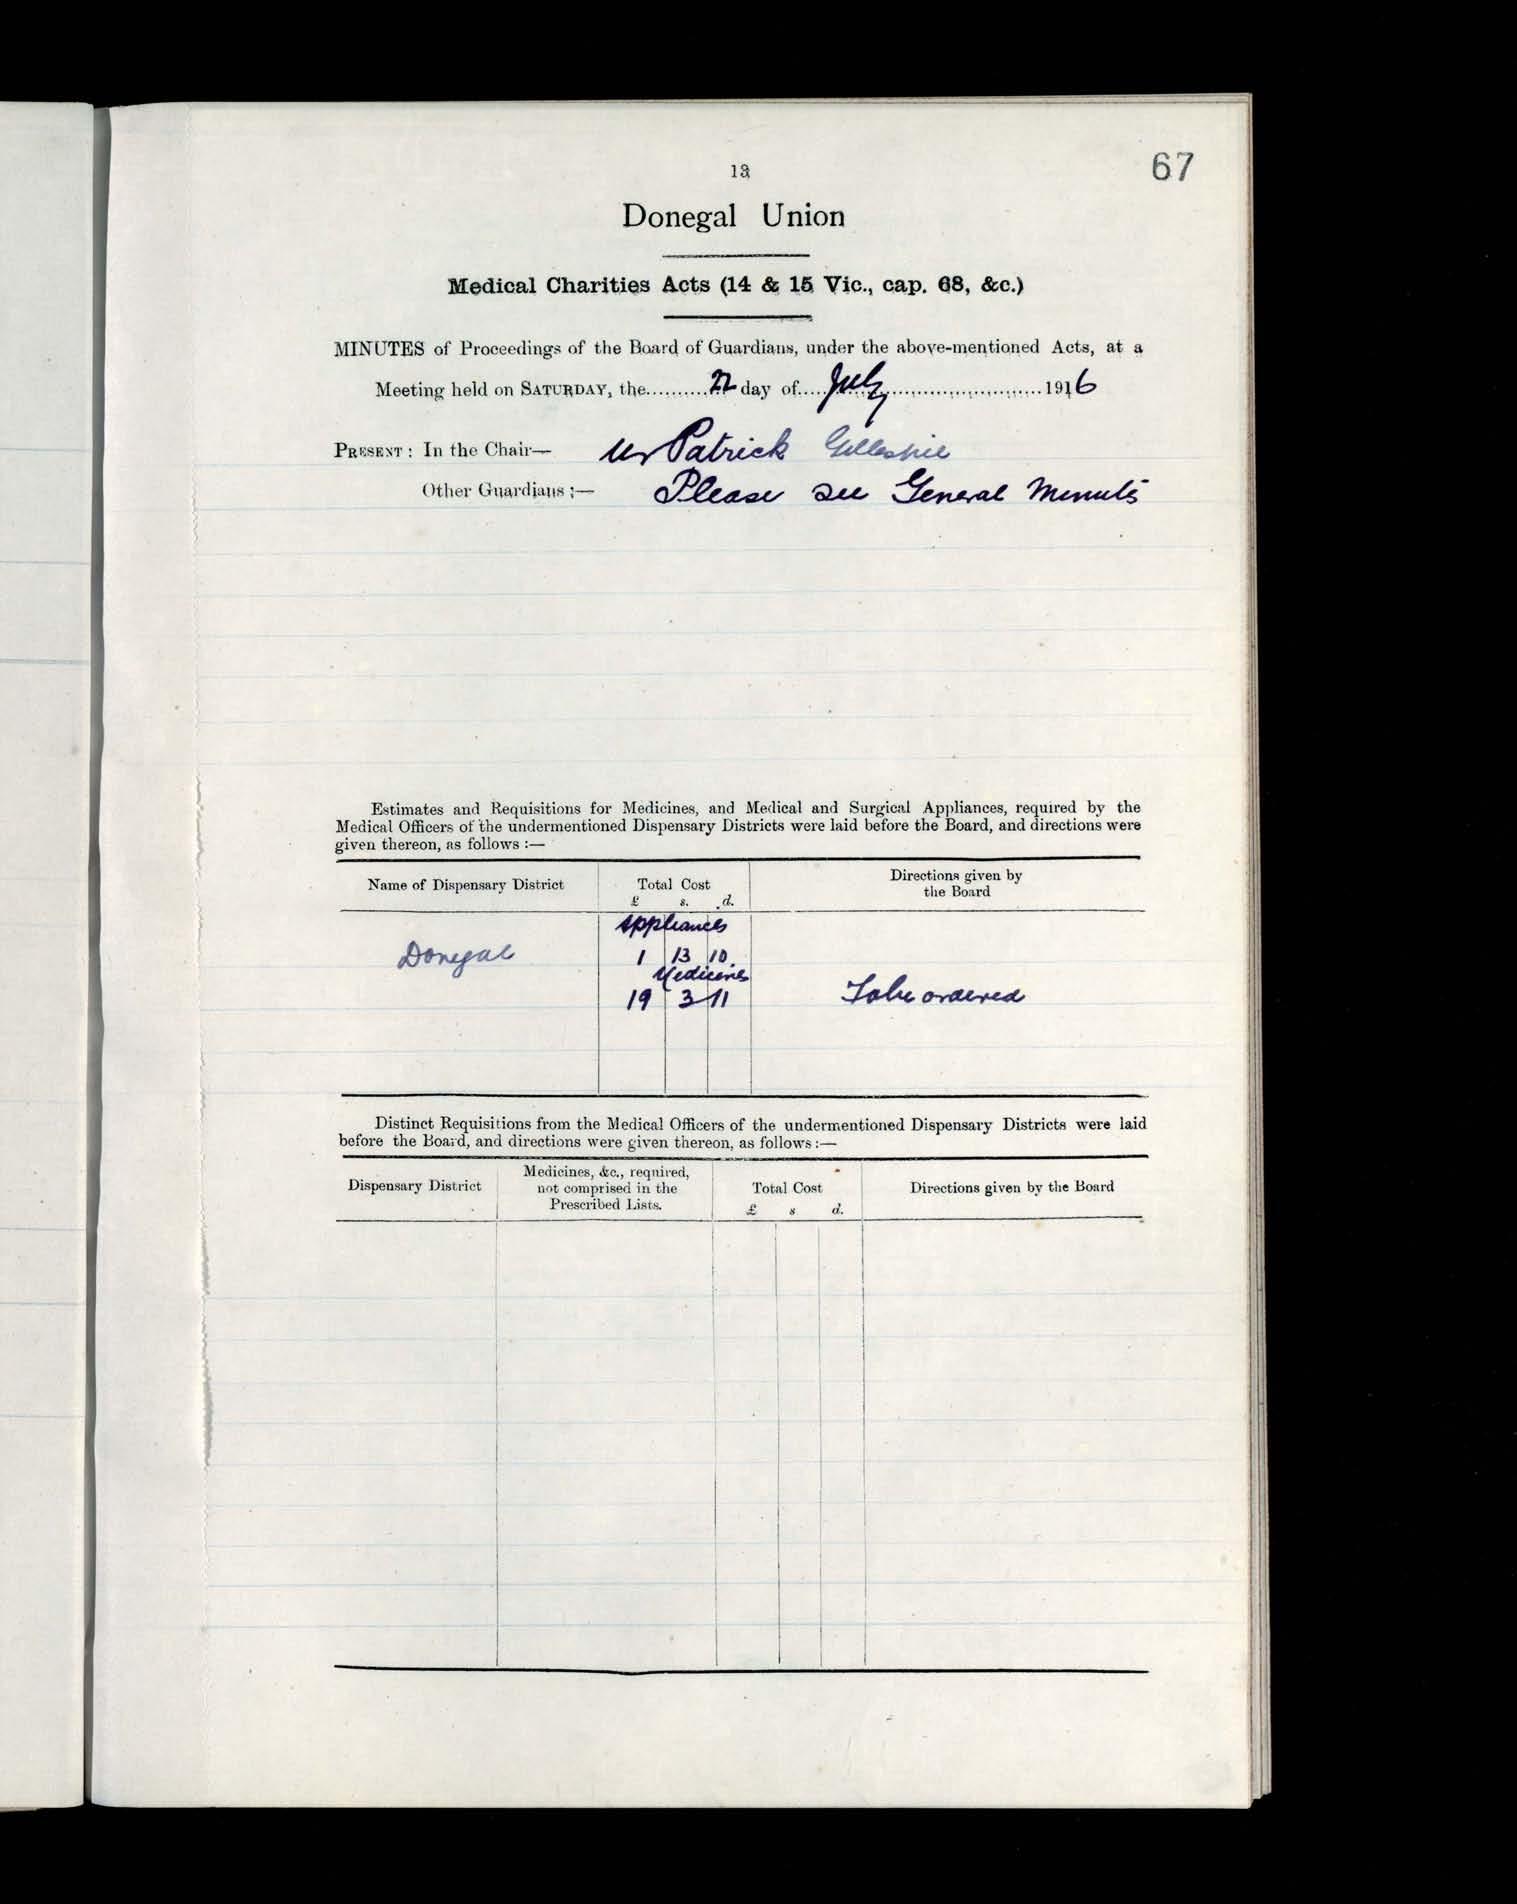 67
13
Donegal Union
Medical Charities Acts (14 & 15 Vic., cap. 68, &c.)
MINUTES of Proceedings of the Board of Guardians, under the above-mentioned Acts, at a
Meeting held on SATURDAY, the..........22 day of....July..............................1916
PRESENT: In the Chair— Mr Patrick Gillespie
Other Guardians:— Please see General Minutes
Estimates and Requisitions for Medicines, and Medical and Surgical Appliances, required by the
Medical Officers of the undermentioned Dispensary Districts were laid before the Board, and directions were
given thereon, as follows :—
Name of Dispensary District Total Cost Directions given by
the Board
£ s. d.
Appliances
Donegal 1 13 10
Medicines
19 3 11 To be ordered
Distinct Requisitions from the Medical Officers of the undermentioned Dispensary Districts were laid
before the Board, and directions were given thereon, as follows:—
Dispensary District Medicines, &c., required,
not comprised in the
Prescribed Lists. Total Cost Directions given by the Board
£ s d.